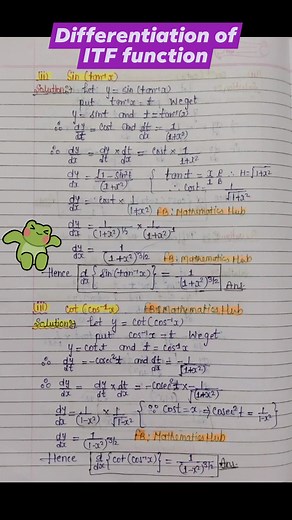 Differentiation of
ITF function
(ii) Sin (tan⁻¹x)
Solution:- Let y = sin(tan⁻¹x)
put tan⁻¹x = t We get
y = sint and t = tan⁻¹(x)
∴ dy/dt = cost and dt/dx = 1/(1+x²)
∴ dy/dx = dy/dt × dt/dx = cost × 1/1+x²
dy/dx = √1-sin²t/(1+x²) { tant = x/1 P/B ∴ H=√1+x²
dy/dx = cost × 1/(1+x²) ∴ cost = 1/√1+x²
FB: Mathematics Hub
dy/dx = 1/(1+x²)^1/2 × 1/(1+x²)^1
dy/dx = 1/(1+x²)^3/2 FB: Mathematics Hub
Hence d/dx {sin(tan⁻¹x)} = 1/(1+x²)^3/2 Ans
(iii) cot(cos⁻¹x) FB: Mathematics Hub
Solution:- Let y = cot(cos⁻¹x)
put cos⁻¹x = t We get
y = cot.t and t = cos⁻¹x
∴ dy/dt = -cosec²t and dt/dx = -1/√(1+x²)
∴ dy/dx = dy/dt × dt/dx = -cosec²t × -1/√(1+x²)
dy/dx = 1/(1-x²) × 1/√1-x² { ∵ cost = x ⇒ cosec²t = 1/1-x² }
dy/dx = 1/(1-x²)^3/2 FB: Mathematics Hub
Hence d/dx {cot(cos⁻¹x)} = 1/(1-x²)^3/2 Ans.